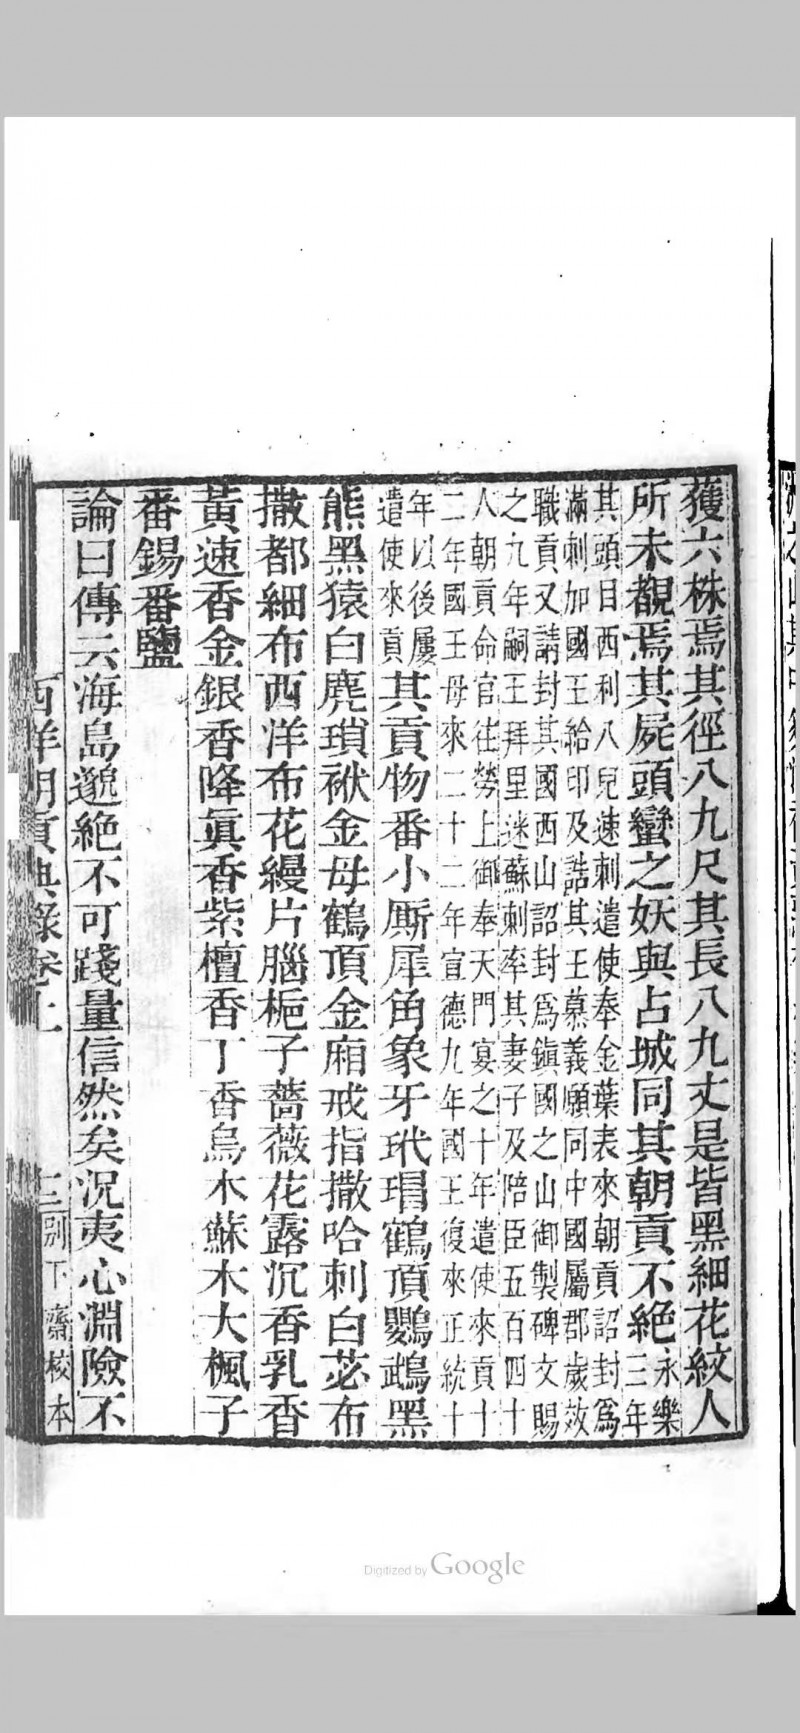 獲六株焉其徑八九尺其長八九丈是皆黑細花紋人
所未覩焉其屍頭蠻之妖與占城同其朝貢不絕永樂
三年
其頭目西利八兒速刺遣使奉金葉表來朝貢詔封爲
滿刺加國王給印及誥其王慕義願同中國屬郡歲效
職貢又請封其國西山詔封爲鎮國之山御製碑文賜
之九年嗣王拜里迷蘇刺率其妻子及陪臣五百四十
人朝貢命官往勞上御奉天門宴之十年遣使來貢十
二年國王母來二十二年宣德九年國王復來正統十
年以後屢
遣使來貢其貢物番小厮犀角象牙玳瑁鶴頂鸚鵡黑
熊黑猿白麂瑣袱金母鶴頂金廂戒指撒哈刺白苾布
撒都細布西洋布花縵片腦梔子薔薇花露沉香乳香
黃速香金銀香降眞香紫檀香丁香烏木蘇木大楓子
番錫番鹽
論曰傳云海島邈絕不可踐量信然矣况夷心淵險不
西洋朝貢典錄卷上
三
別下齋校本
Digitized by Google